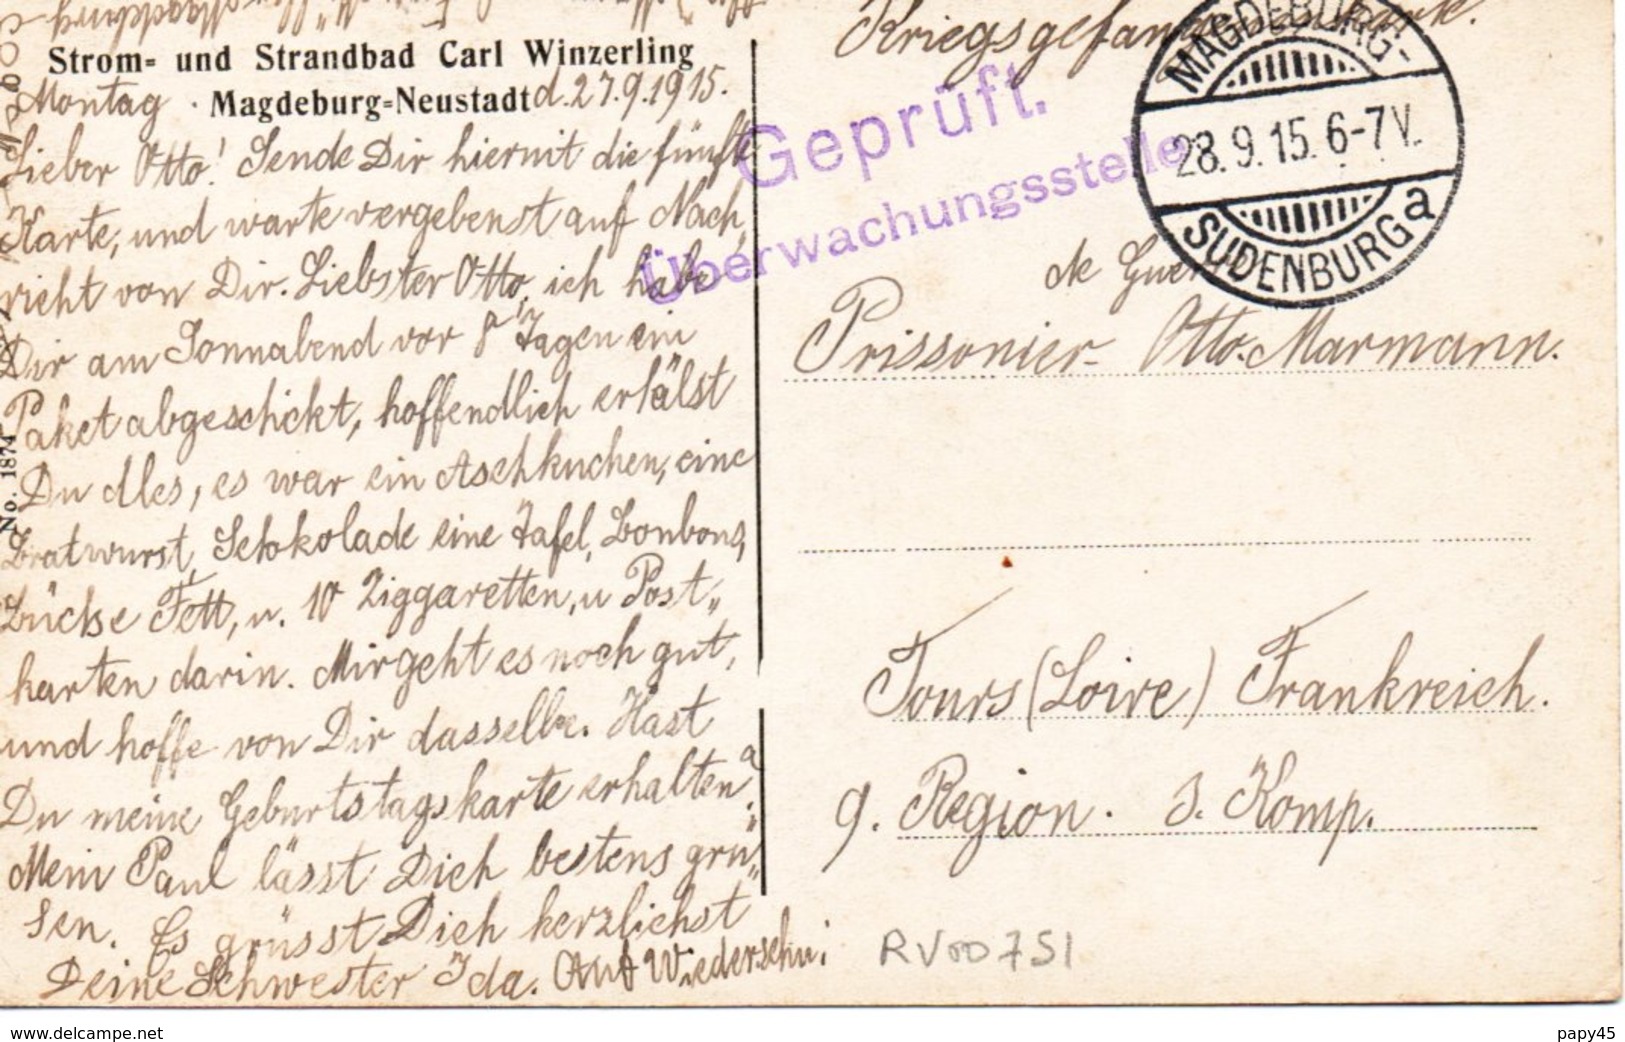 Kriegsgefangenenkarte.
Strom- und Strandbad Carl Winzerling
Magdeburg-Neustadt
Montag d. 27.9.1915.
Lieber Otto! Sende Dir hiermit die fünfte
Karte, und warte vergebenst auf Nach„
richt von Dir. Liebster Otto, ich habe
Dir am Sonnabend vor 8 Tagen ein
Paket abgeschickt, hoffendlich erhälst
Du Alles, es war ein Aschkuchen, eine
Bratwurst, Schokolade eine Tafel, Bonbons,
Bückse Fett, u. 10 Ziggaretten, u Post„
karten darin. Mir geht es noch gut,
und hoffe von Dir dasselbe. Hast
Du meine Geburtstagskarte erhalten?
Mein Paul lässt Dich bestens grü„
sen. Es grüsst Dich herzlichst
Deine Schwester Ida. Auf Wiedersehn!
No. 1874
Geprüft.
Überwachungsstelle
MAGDEBURG-
28.9.15.6-7V.
SUDENBURG a
de Guerre
Prissonier- Otto Marmann.
Tours (Loire) Frankreich.
9. Region. 3. Komp.
RV00751
www.delcampe.net
papy45